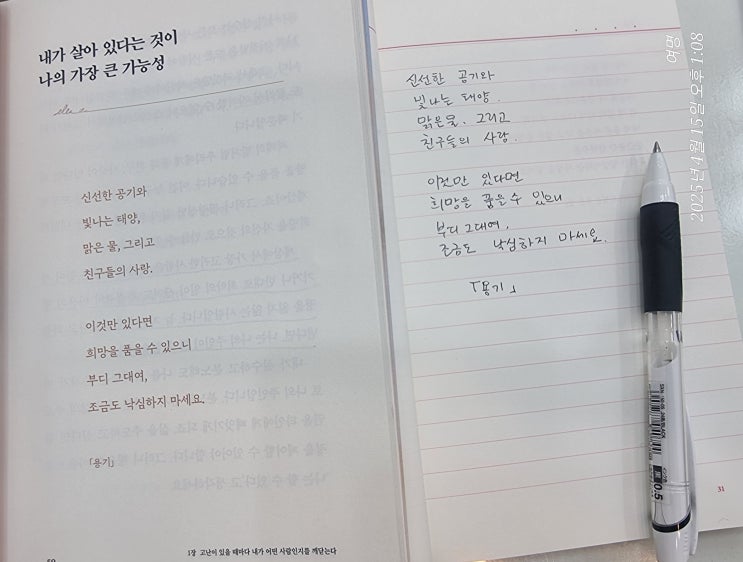 내가 살아 있다는 것이
나의 가장 큰 가능성
신선한 공기와
빛나는 태양,
맑은 물, 그리고
친구들의 사랑.
이것만 있다면
희망을 품을 수 있으니
부디 그대여,
조금도 낙심하지 마세요.
「용기」
1장 고난이 있을 때마다 내가 어떤 사람인지를 깨닫는다
신선한 공기와
빛나는 태양.
맑은물. 그리고
친구들의 사랑.
이것만 있다면
희망을 품을수 있으니
부디 그대여,
조금도 낙심하지 마세요.
「용기」
31
여명
2025년 4월 15일 오후 1:08
0.5